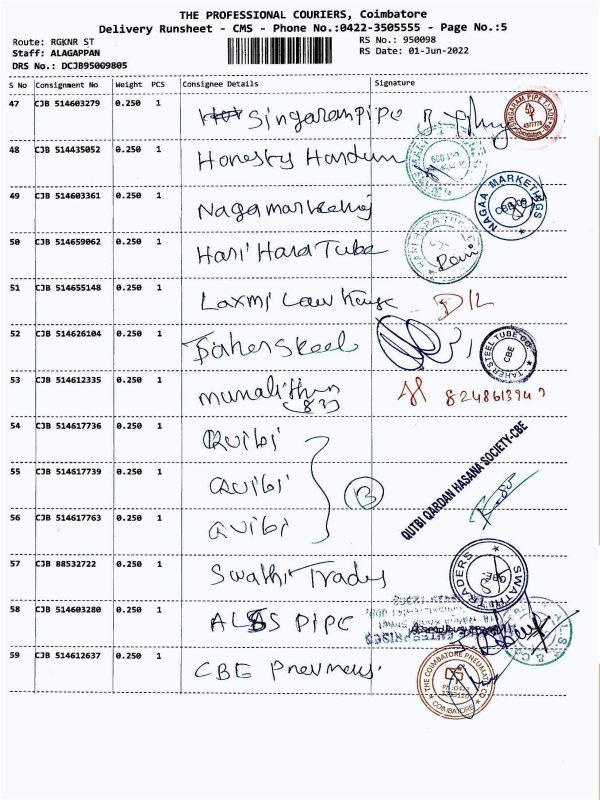 THE PROFESSIONAL COURIERS, Coimbatore
Delivery Runsheet - CMS - Phone No.:0422-3505555 - Page No.:5
Route: RGKNR ST
RS No.: 950098
Staff: ALAGAPPAN
RS Date: 01-Jun-2022
DRS No.: DCJB95009805
S No Consignment No Weight PCS Consignee Details Signature
47 CJB 514603279 0.250 1 Singaram pipe
SINGARAM PIPE TRADE
48 CJB 514435052 0.250 1 Honesty
49 CJB 514603361 0.250 1 Naga marketing
NAGAA MARKETINGS
50 CJB 514659062 0.250 1 Hari Hara Tube
HARI HARA TUBE
51 CJB 514655148 0.250 1 Laxmi
52 CJB 514626104 0.250 1 Taher Steel
TAHER STEEL TUBE CO. CBE
53 CJB 514612335 0.250 1
54 CJB 514617736 0.250 1 Qutbi
55 CJB 514617739 0.250 1 Qutbi
QUTBI QARDAN HASANA SOCIETY-CBE
56 CJB 514617763 0.250 1 Qutbi
57 CJB 88532722 0.250 1 Swathi Trades
SWATHI TRADERS
58 CJB 514603280 0.250 1 ALS PIPE
59 CJB 514612637 0.250 1 CBE
THE COIMBATORE PNEUMATIC CO
COIMBATORE